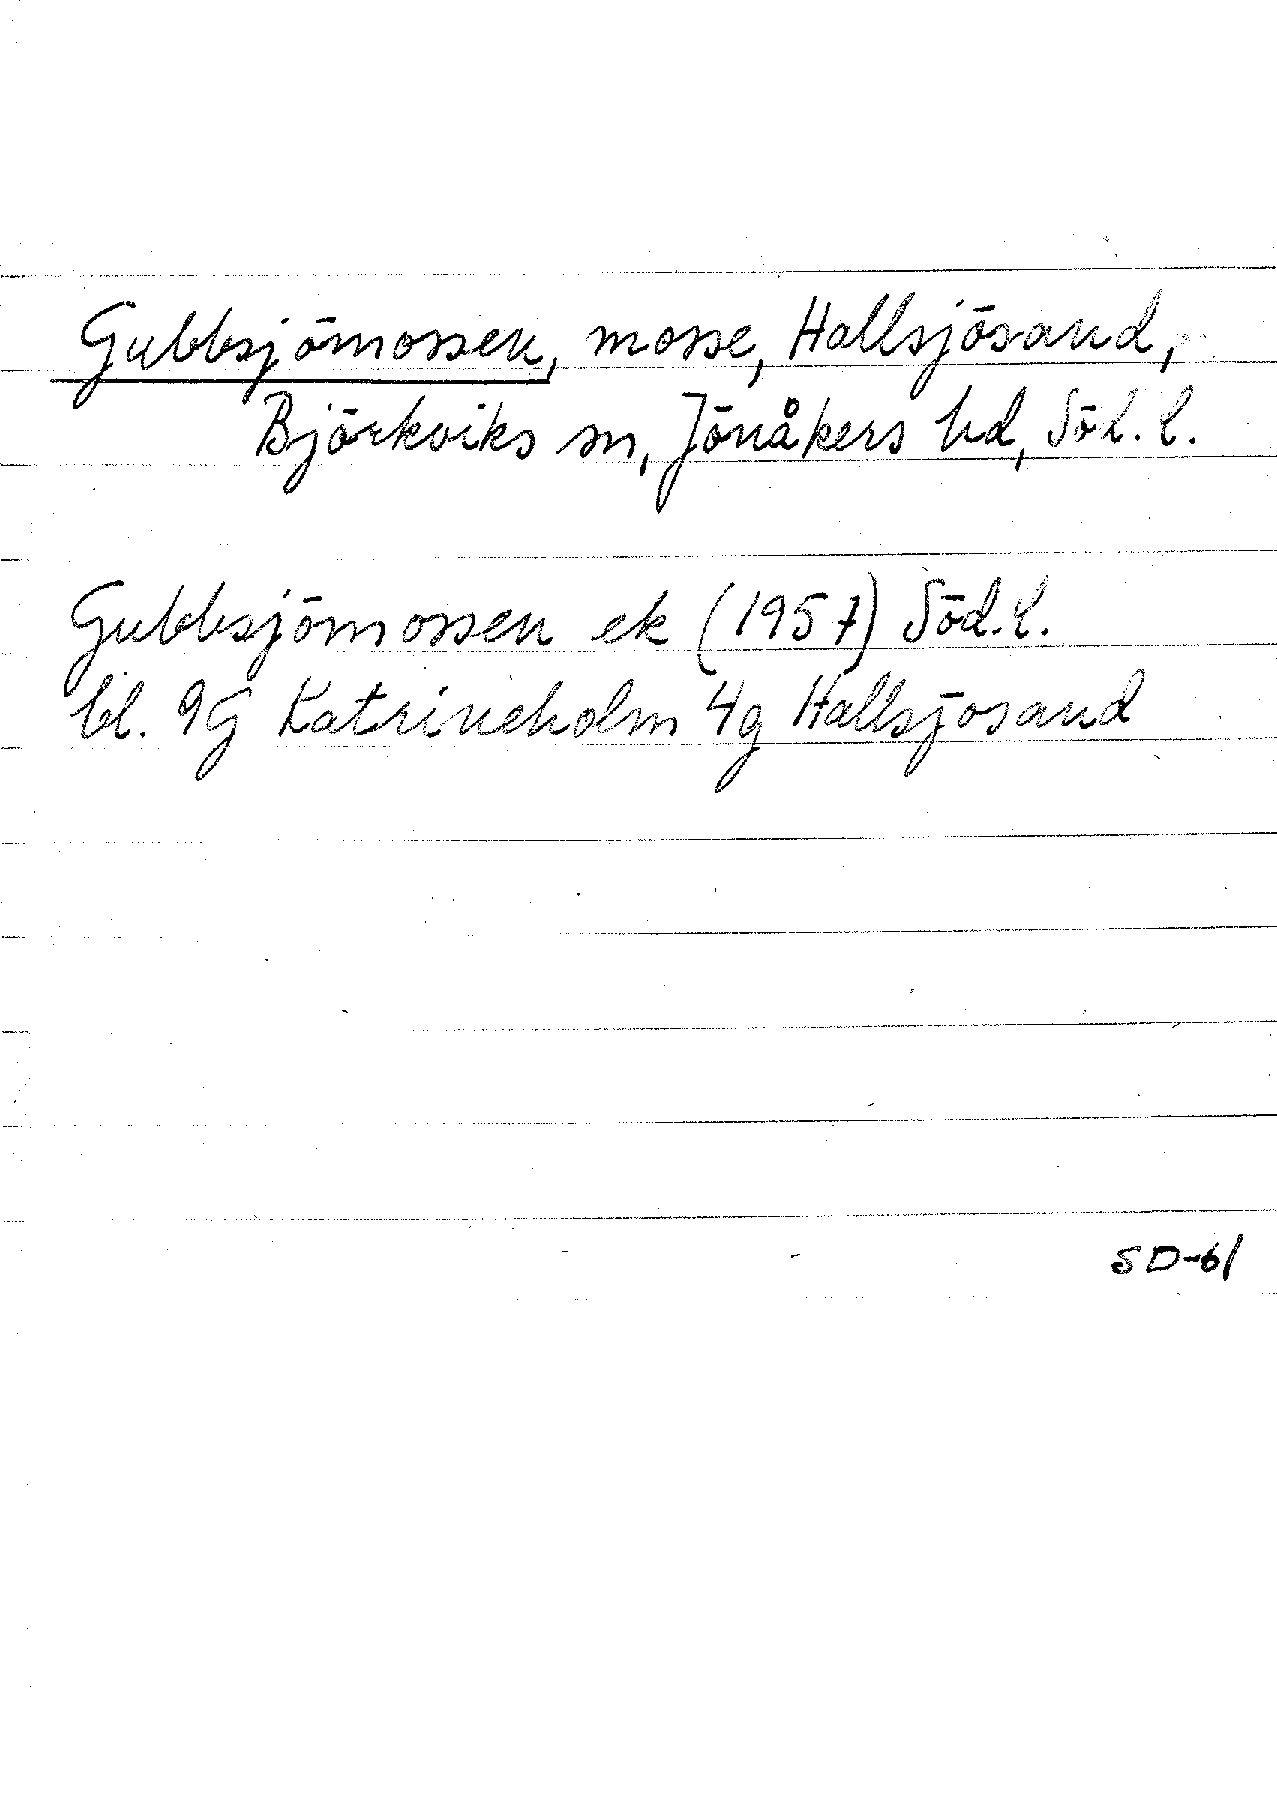 Gubbsjömossen, mosse, Hallsjösand,
Björkviks sn, Jönåkers hd, Söd. l.
Gubbsjömossen ek (1957) Söd. l.
bl. 9G Katrineholm 4g Hallsjösand
SD-61